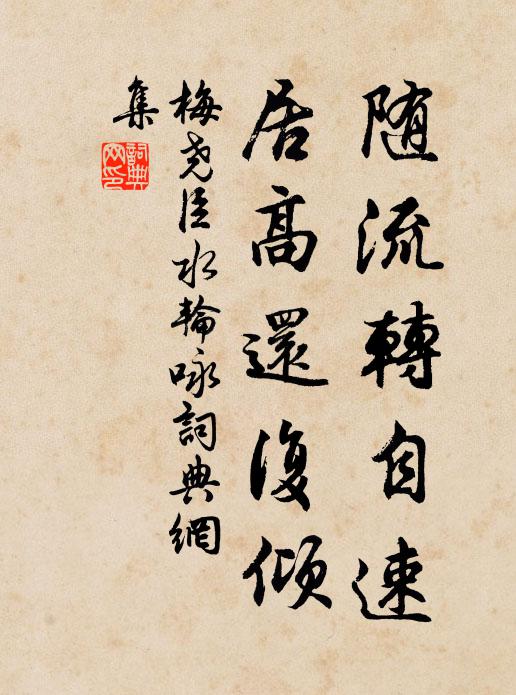 随流轉自速
居高還復傾
梅尧臣水輪咏詞典網
集
詞典
网印